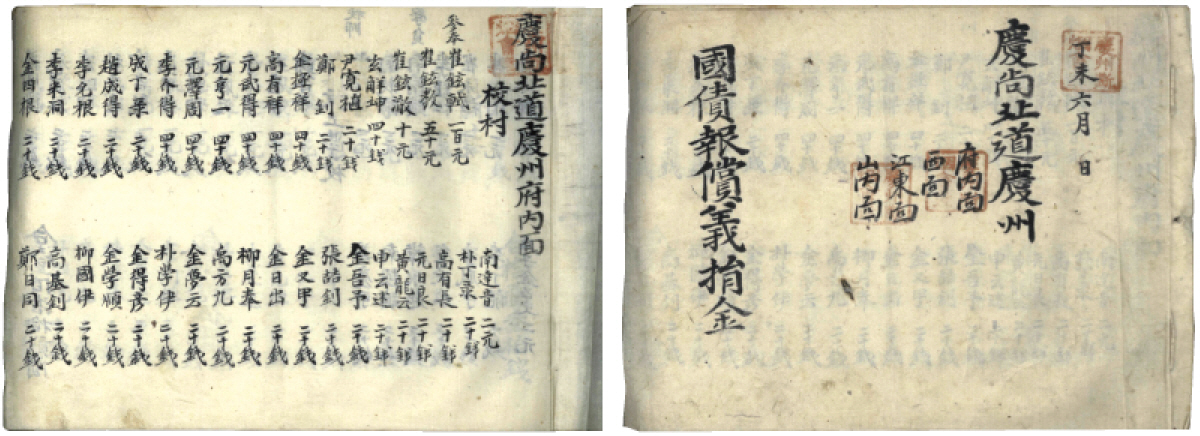 丁未六月 日
慶尚北道慶州
府內面
西面
江東面
山內面
國債報償義捐金
慶尚北道慶州府內面
校村
參奉 崔鉉軾 一百元
崔鉉教 五十元
崔鉉澈 十元
玄觧坤 四十錢
尹寬植 二十錢
鄭釗 二十錢
金擇祥 四十錢
高有祥 四十錢
元武得 四十錢
元亨一 四十錢
元澤周 四十錢
李介得 四十錢
成丁栗 二十錢
趙成得 二十錢
李元根 二十錢
李来洞 二十錢
金田根 二十錢
南達音 二元
朴丁彔 二十錢
高有長 二十錢
元日良 二十錢
黃龍云 二十錢
申云述 二十錢
金吾予 二十錢
張喆釗 二十錢
金又甲 二十錢
金日出 二十錢
柳月奉 二十錢
高方九 二十錢
金夢云 二十錢
朴学伊 二十錢
金得彦 二十錢
金学順 二十錢
柳國伊 二十錢
高基釗 二十錢
鄭日同 二十錢